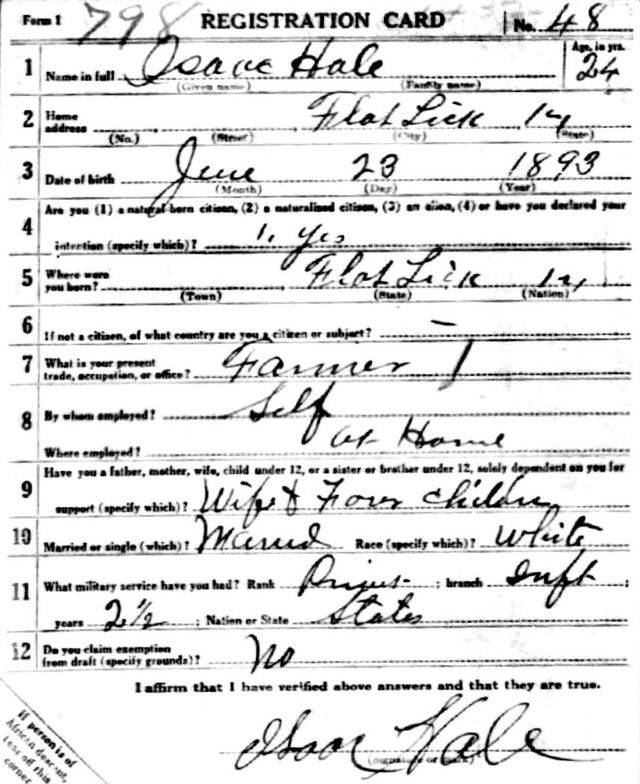 Form 1 798 REGISTRATION CARD No. 48
1 Name in full Isaac Hale Age, in yrs. 24
(Given name) (Family name)
2 Home address Flat Lick Ky
(No.) (Street) (City) (State)
3 Date of birth June 23 1893
(Month) (Day) (Year)
4 Are you (1) a natural-born citizen, (2) a naturalized citizen, (3) an alien, (4) or have you declared your
intention (specify which)? 1. Yes
5 Where were you born? Flat Lick Ky
(Town) (State) (Nation)
6 If not a citizen, of what country are you a citizen or subject? —
7 What is your present trade, occupation, or office? Farmer 1
8 By whom employed? Self
Where employed? at Home
9 Have you a father, mother, wife, child under 12, or a sister or brother under 12, solely dependent on you for
support (specify which)? Wife & Four children
10 Married or single (which)? Married Race (specify which)? White
11 What military service have you had? Rank ; branch Inft ;
years 2½ ; Nation or State States
12 Do you claim exemption from draft (specify grounds)? No
I affirm that I have verified above answers and that they are true.
Isaac Hale
(Signature or mark)
If person is of
African descent,
tear off this
corner.